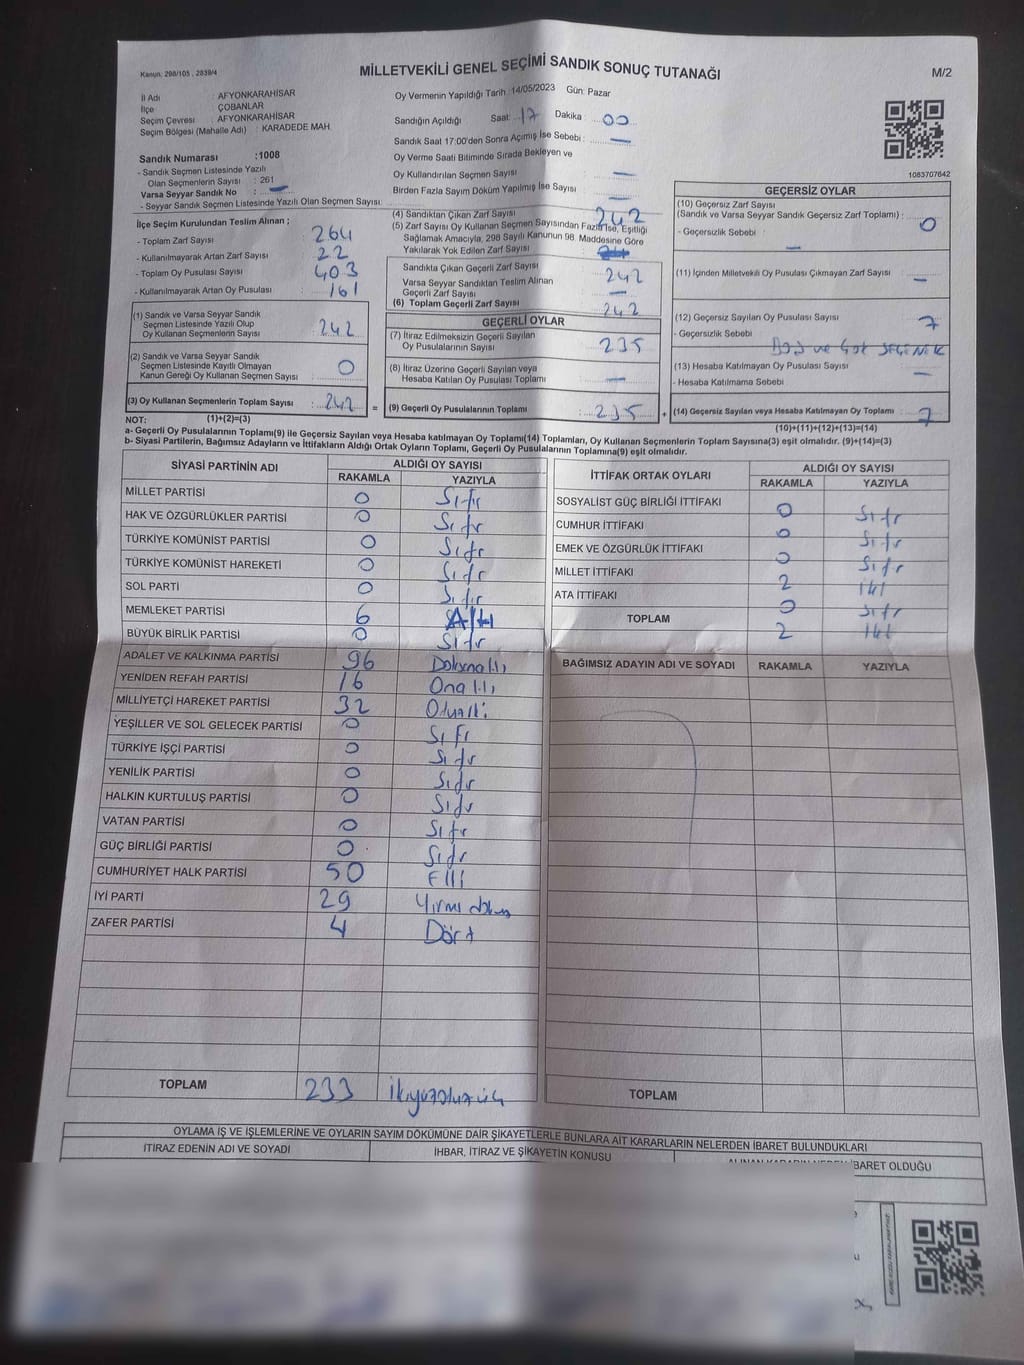 Kanun: 298/105 , 2839/4
MİLLETVEKİLİ GENEL SEÇİMİ SANDIK SONUÇ TUTANAĞI
M/2
İl Adı : AFYONKARAHİSAR
İlçe : ÇOBANLAR
Seçim Çevresi : AFYONKARAHİSAR
Seçim Bölgesi (Mahalle Adı) : KARADEDE MAH.
Sandık Numarası :1008
- Sandık Seçmen Listesinde Yazılı
Olan Seçmenlerin Sayısı : 261
Varsa Seyyar Sandık No : —
- Seyyar Sandık Seçmen Listesinde Yazılı Olan Seçmen Sayısı:
Oy Vermenin Yapıldığı Tarih: 14/05/2023 Gün: Pazar
Sandığın Açıldığı Saat: 17 Dakika : 00
Sandık Saat 17:00'den Sonra Açılmış İse Sebebi : —
Oy Verme Saati Bitiminde Sırada Bekleyen ve
Oy Kullandırılan Seçmen Sayısı : —
Birden Fazla Sayım Döküm Yapılmış İse Sayısı : —
1083707642
İlçe Seçim Kurulundan Teslim Alınan ;
- Toplam Zarf Sayısı : 264
- Kullanılmayarak Artan Zarf Sayısı : 22
- Toplam Oy Pusulası Sayısı : 403
- Kullanılmayarak Artan Oy Pusulası : 161
(1) Sandık ve Varsa Seyyar Sandık
Seçmen Listesinde Yazılı Olup
Oy Kullanan Seçmenlerin Sayısı : 242
(2) Sandık ve Varsa Seyyar Sandık
Seçmen Listesinde Kayıtlı Olmayan
Kanun Gereği Oy Kullanan Seçmen Sayısı : 0
(3) Oy Kullanan Seçmenlerin Toplam Sayısı : 242 =
(1)+(2)=(3)
(4) Sandıktan Çıkan Zarf Sayısı : 242
(5) Zarf Sayısı Oy Kullanan Seçmen Sayısından Fazla İse, Eşitliği
Sağlamak Amacıyla, 298 Sayılı Kanunun 98. Maddesine Göre
Yakılarak Yok Edilen Zarf Sayısı
Sandıkta Çıkan Geçerli Zarf Sayısı : 242
Varsa Seyyar Sandıktan Teslim Alınan
Geçerli Zarf Sayısı : —
(6) Toplam Geçerli Zarf Sayısı : 242
GEÇERLİ OYLAR
(7) İtiraz Edilmeksizin Geçerli Sayılan
Oy Pusulalarının Sayısı : 235
(8) İtiraz Üzerine Geçerli Sayılan veya
Hesaba Katılan Oy Pusulası Toplamı : —
(9) Geçerli Oy Pusulalarının Toplamı : 235 +
GEÇERSİZ OYLAR
(10) Geçersiz Zarf Sayısı
(Sandık ve Varsa Seyyar Sandık Geçersiz Zarf Toplamı) : 0
- Geçersizlik Sebebi : —
(11) İçinden Milletvekili Oy Pusulası Çıkmayan Zarf Sayısı : —
(12) Geçersiz Sayılan Oy Pusulası Sayısı : 7
- Geçersizlik Sebebi : Boş ve Çok SEÇENEK
(13) Hesaba Katılmayan Oy Pusulası Sayısı : —
- Hesaba Katılmama Sebebi :
(14) Geçersiz Sayılan veya Hesaba Katılmayan Oy Toplamı : 7
(10)+(11)+(12)+(13)=(14)
NOT:
a- Geçerli Oy Pusulalarının Toplamı(9) ile Geçersiz Sayılan veya Hesaba katılmayan Oy Toplamı(14) Toplamları, Oy Kullanan Seçmenlerin Toplam Sayısına(3) eşit olmalıdır. (9)+(14)=(3)
b- Siyasi Partilerin, Bağımsız Adayların ve İttifakların Aldığı Ortak Oyların Toplamı, Geçerli Oy Pusulalarının Toplamına(9) eşit olmalıdır.
SİYASİ PARTİNİN ADI ALDIĞI OY SAYISI
RAKAMLA YAZIYLA
MİLLET PARTİSİ 0 Sıfır
HAK VE ÖZGÜRLÜKLER PARTİSİ 0 Sıfır
TÜRKİYE KOMÜNİST PARTİSİ 0 Sıfır
TÜRKİYE KOMÜNİST HAREKETİ 0 Sıfır
SOL PARTİ 0 Sıfır
MEMLEKET PARTİSİ 6 Altı
BÜYÜK BİRLİK PARTİSİ 0 Sıfır
ADALET VE KALKINMA PARTİSİ 96 Doksanaltı
YENİDEN REFAH PARTİSİ 16 Onaltı
MİLLİYETÇİ HAREKET PARTİSİ 32 Otuziki
YEŞİLLER VE SOL GELECEK PARTİSİ 0 Sıfır
TÜRKİYE İŞÇİ PARTİSİ 0 Sıfır
YENİLİK PARTİSİ 0 Sıfır
HALKIN KURTULUŞ PARTİSİ 0 Sıfır
VATAN PARTİSİ 0 Sıfır
GÜÇ BİRLİĞİ PARTİSİ 0 Sıfır
CUMHURİYET HALK PARTİSİ 50 Elli
İYİ PARTİ 29 Yirmi dokuz
ZAFER PARTİSİ 4 Dört
TOPLAM 233 İkiyüzotuzüç
İTTİFAK ORTAK OYLARI ALDIĞI OY SAYISI
RAKAMLA YAZIYLA
SOSYALİST GÜÇ BİRLİĞİ İTTİFAKI 0 Sıfır
CUMHUR İTTİFAKI 0 Sıfır
EMEK VE ÖZGÜRLÜK İTTİFAKI 0 Sıfır
MİLLET İTTİFAKI 2 iki
ATA İTTİFAKI 0 Sıfır
TOPLAM 2 iki
BAĞIMSIZ ADAYIN ADI VE SOYADI RAKAMLA YAZIYLA
TOPLAM
OYLAMA İŞ VE İŞLEMLERİNE VE OYLARIN SAYIM DÖKÜMÜNE DAİR ŞİKAYETLERLE BUNLARA AİT KARARLARIN NELERDEN İBARET BULUNDUKLARI
İTİRAZ EDENİN ADI VE SOYADI İHBAR, İTİRAZ VE ŞİKAYETİN KONUSU ALINAN KARARIN NEDEN İBARET OLDUĞU